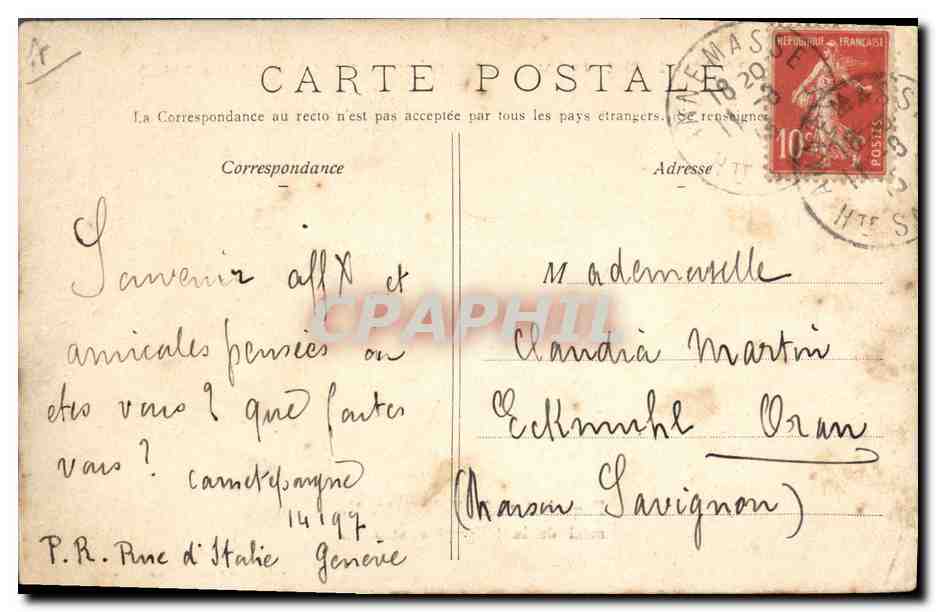 CARTE POSTALE
La Correspondance au recto n'est pas acceptée par tous les pays étrangers. Se renseigner
Correspondance
Souvenir aff X et
amicales pensées ou
etes vous ? que faites
vous ?
Carnet épargne
14197
P. R. Rue d'Italie Genève
Adresse
Mademoiselle
Claudia Martin
Eckmuhl Oran
(Maison Savignon)
RÉPUBLIQUE FRANÇAISE
10
POSTES
ANNEMASSE
18 20
HTE
HTE SA
CPAPHIL